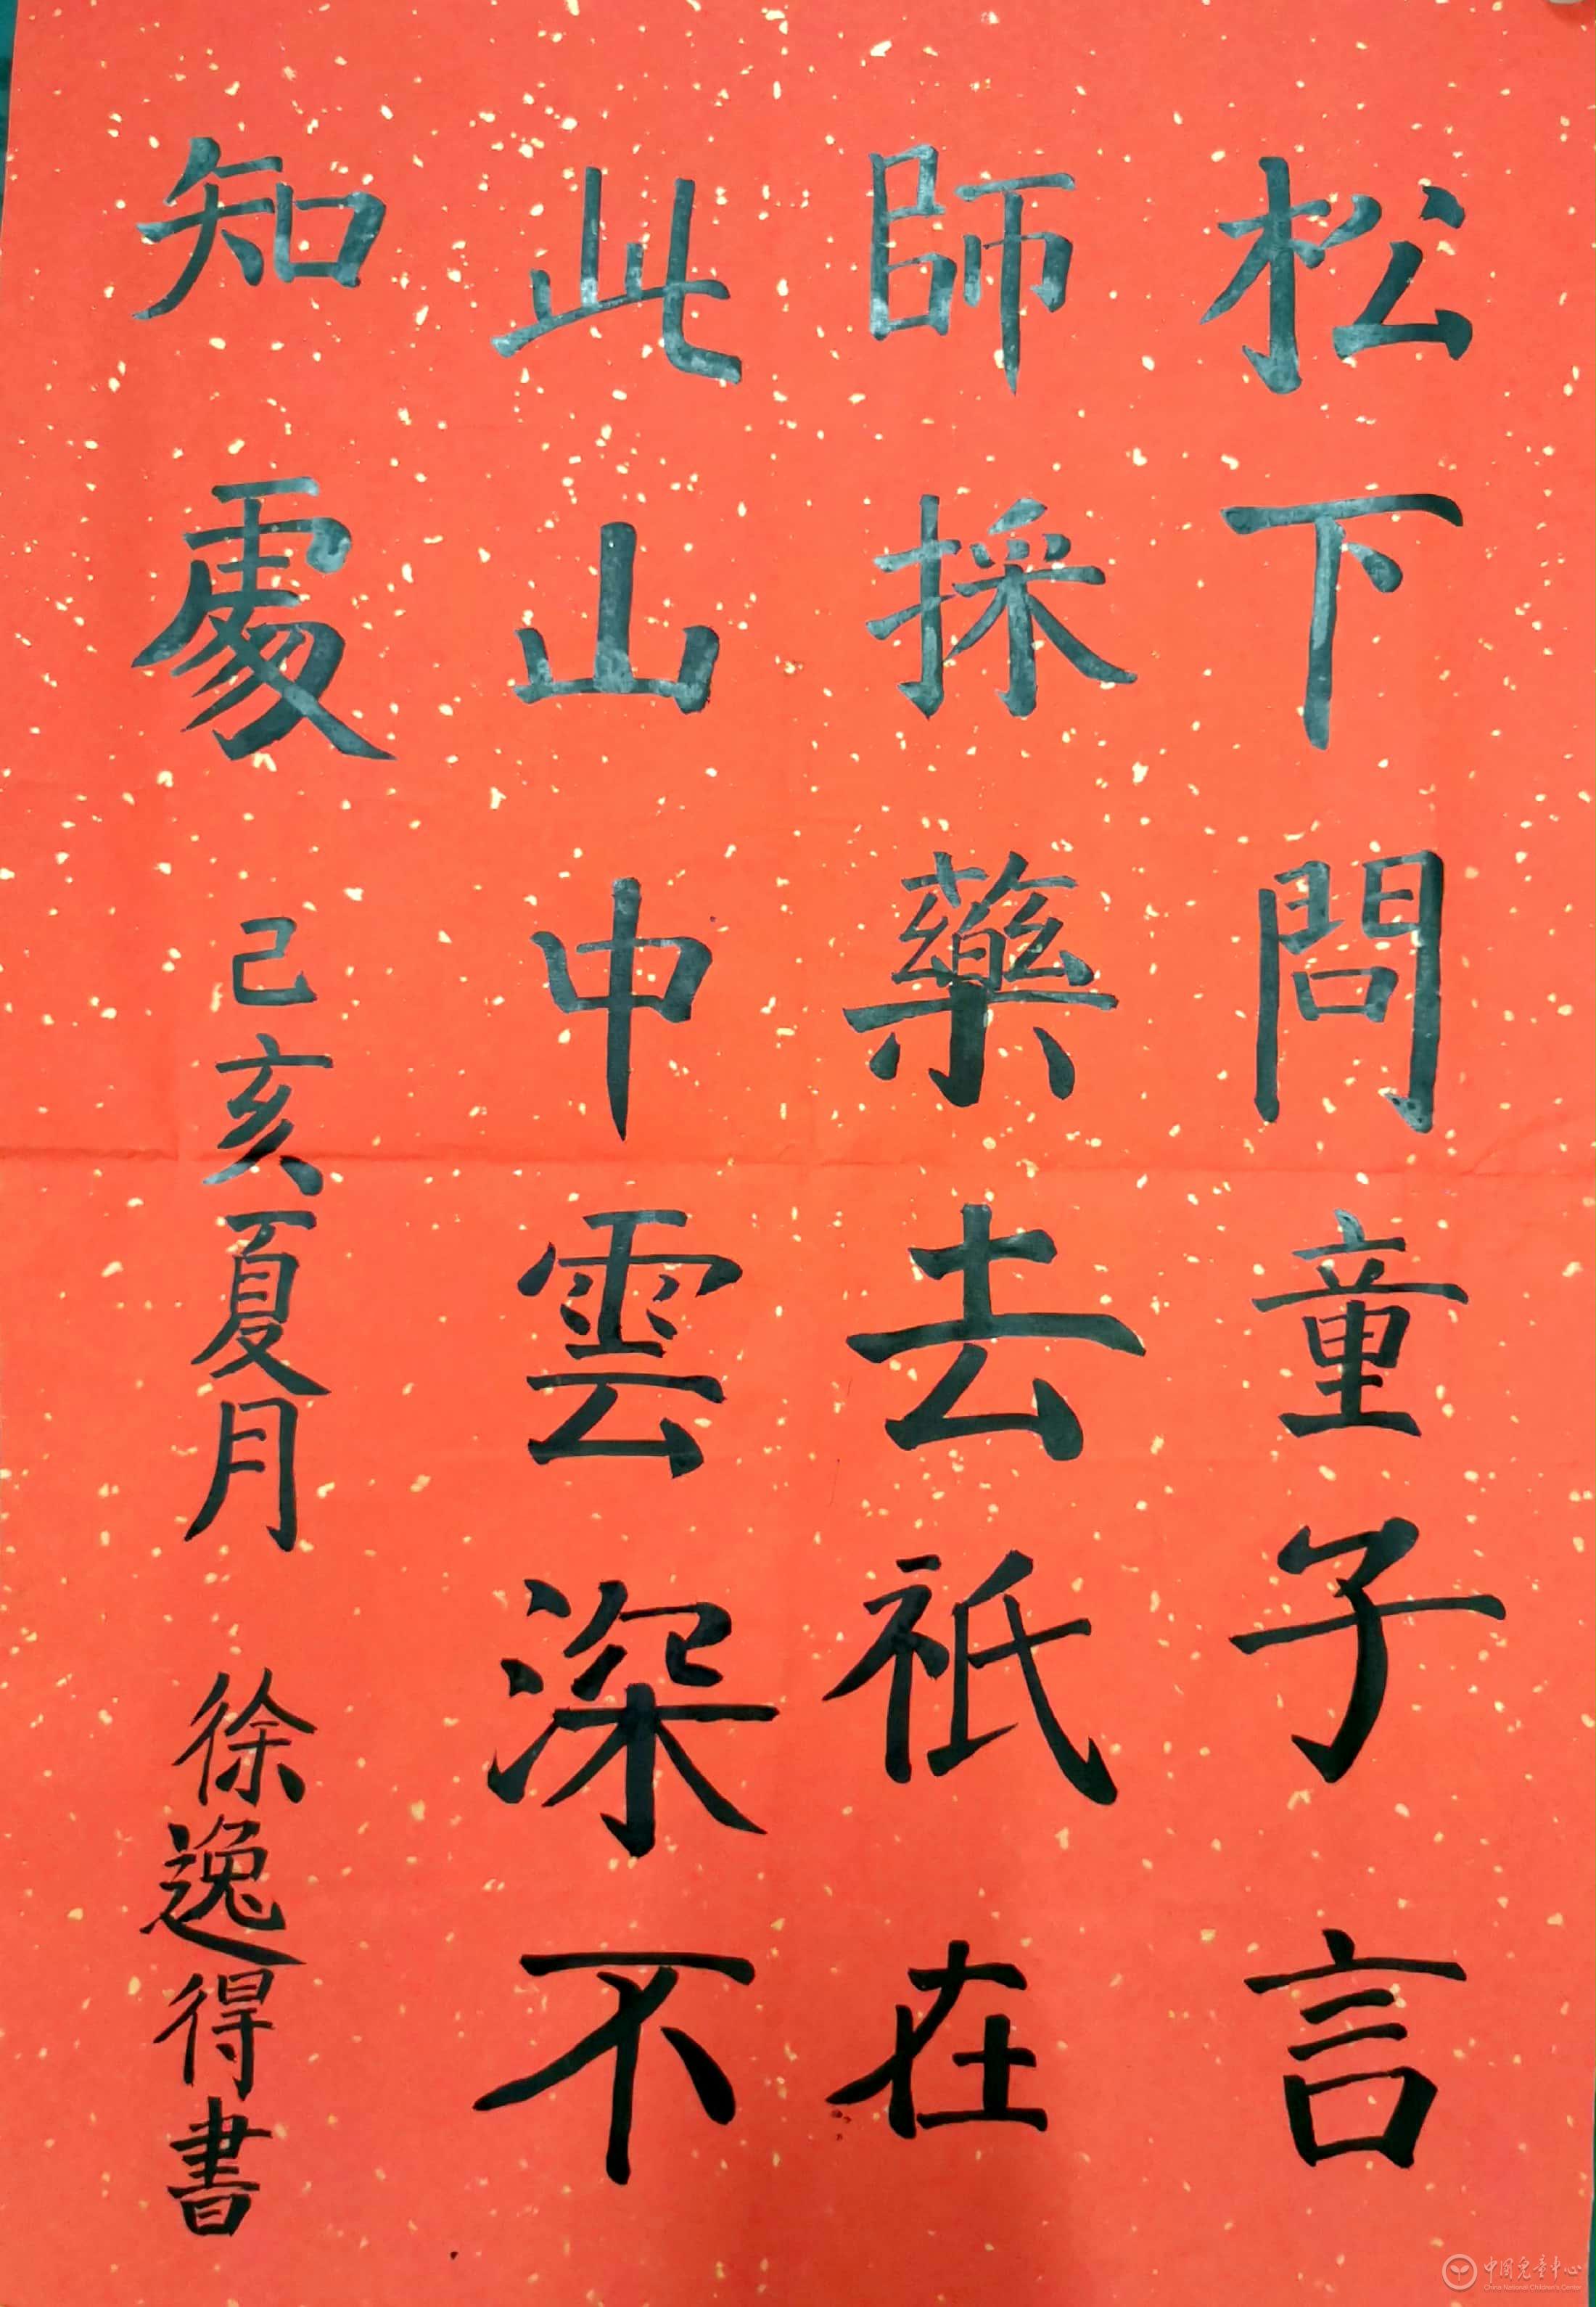 松下問童子言
師採藥去祇在
此山中雲深不
知處 己亥夏月 徐逸得書
中国儿童中心
China National Children's Center